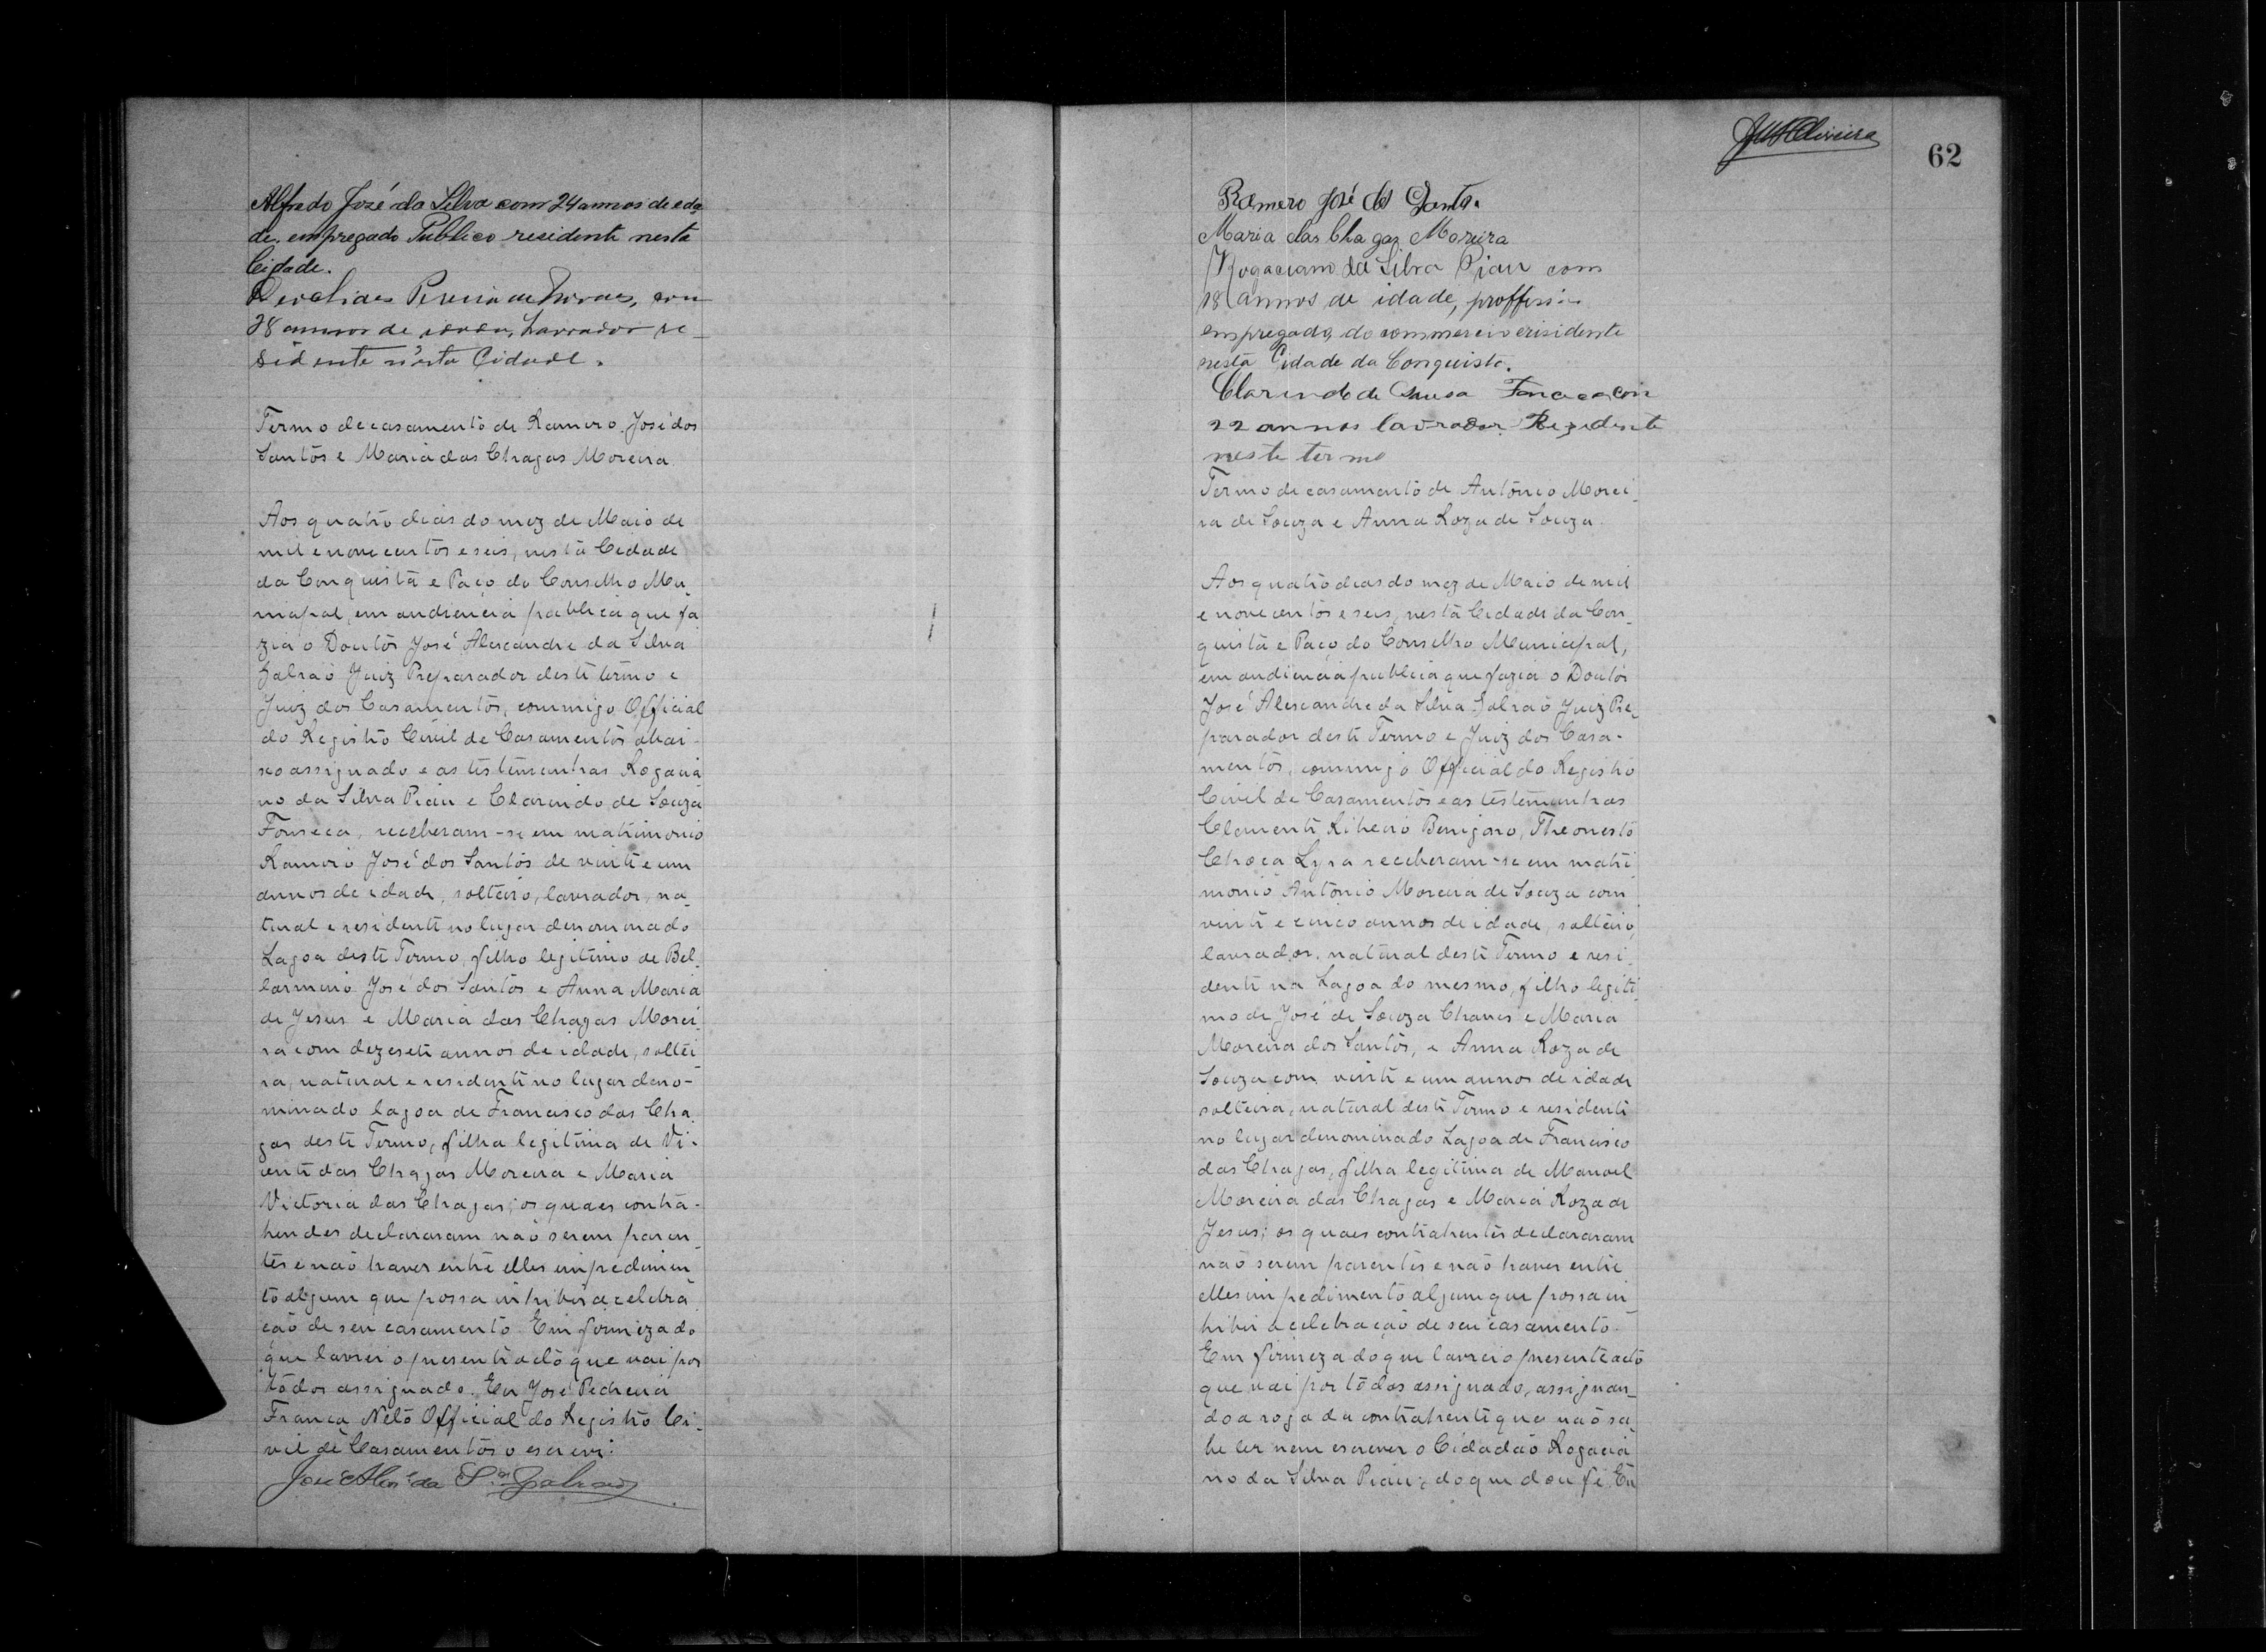 Alfredo José da Silva com 24 annos de eda
de, empregado Publico residente nesta
Cidade.
Pereira de Moraes, com
28 annos de idade, Lavrador re_
sidente n'esta Cidade.
Termo de casamento de Ramiro José dos
Santos e Maria das Chagas Moreira
Aos quatro dias do mez de Maio de
mil e novecentos e seis, nesta Cidade
da Conquista e Paço do Conselho Mu_
nicipal, em audiencia publica que fa
zia o Doutor José Alexandre da Silva
Galrão Juiz Preparador deste termo e
Juiz dos Casamentos, commigo Official
do Registro Civil de Casamentos abai-
xo assignado e as testemunhas Rogacia
no da Silva Piau e Clarindo de Souza
Fonseca, receberam-se em matrimonio
Ramiro José dos Santos de vinte e um
annos de idade, solteiro, lavrador, na_
tural e residente no lugar denominado
Lagoa deste Termo, filho legitimo de Bel_
larmino José dos Santos e Anna Maria
de Jesus e Maria das Chagas Morei_
ra com dezesete annos de idade, soltei
ra, natural e residente no lugar deno-
minado lagoa de Francisco das Cha_
gas deste Termo, filha legitima de Vi-
cente das Chagas Moreira e Maria
Victoria das Chagas; os quaes contra-
hendes declararam não serem paren_
tes e não haver entre elles impedimen_
to algum que possa inhibir a celebra_
ção de seu casamento. Em firmeza do
que lavrei o presente acto que vai por
todos assignado. Eu José Pedreira
França Neto Official do Registro Ci_
vil de Casamentos o escrevi.
José Alexe da Sa Galrão
62
Ramero José dos Santos.
Maria das Chagas Moreira
Rogaciano da Silva Piau com
18 annos de idade, proffissão
empregado do commercio erisidente
nesta Cidade da Conquista.
Clarindo de Sousa Fonceca con
22 annos lavrador Rezidente
neste termo
Termo de casamento de Antônio Morei_
ra de Souza e Anna Roza de Souza.
Aos quatro dias do mez de Maio de mil
e novecentos e seis, nesta Cidade da Con_
quista e Paço do Conselho Municipal,
em audiencia publica que fazia o Doutor
José Alexandre da Silva Galrão Juiz Pre_
parador deste Termo e Juiz dos Casa-
mentos, commigo Official do Registro
Civil de Casamentos e as testemunhas
Clemente Ribeiro Benigno, Theonesto
Chaca Lyra receberam-se em matri
monio Antônio Moreira de Souza com
vinte e cinco annos de idade, solteiro,
lavrador, natural deste Termo e resi_
dente na Lagoa do mesmo, filho legiti_
mo de José de Souza Chaves e Maria
Moreira dos Santos, e Anna Roza de
Souza com vinte e um annos de idade
solteira, natural deste Termo e residente
no lugar denominado Lagoa de Francisco
das Chagas, filha legitima de Manoel
Moreira das Chagas e Maria Roza de
Jesus; os quaes contrahentes declararam
não serem parentes e não haver entre
elles impedimento algum que possa in_
hibir a celebração de seu casamento.
Em firmeza do que lavrei o presente acto
que vai por todos assignado, assignan_
do a rogo da contrahente que não sa_
be ler nem escrever o Cidadão Rogacia
no da Silva Piau; do que dou fé. Eu